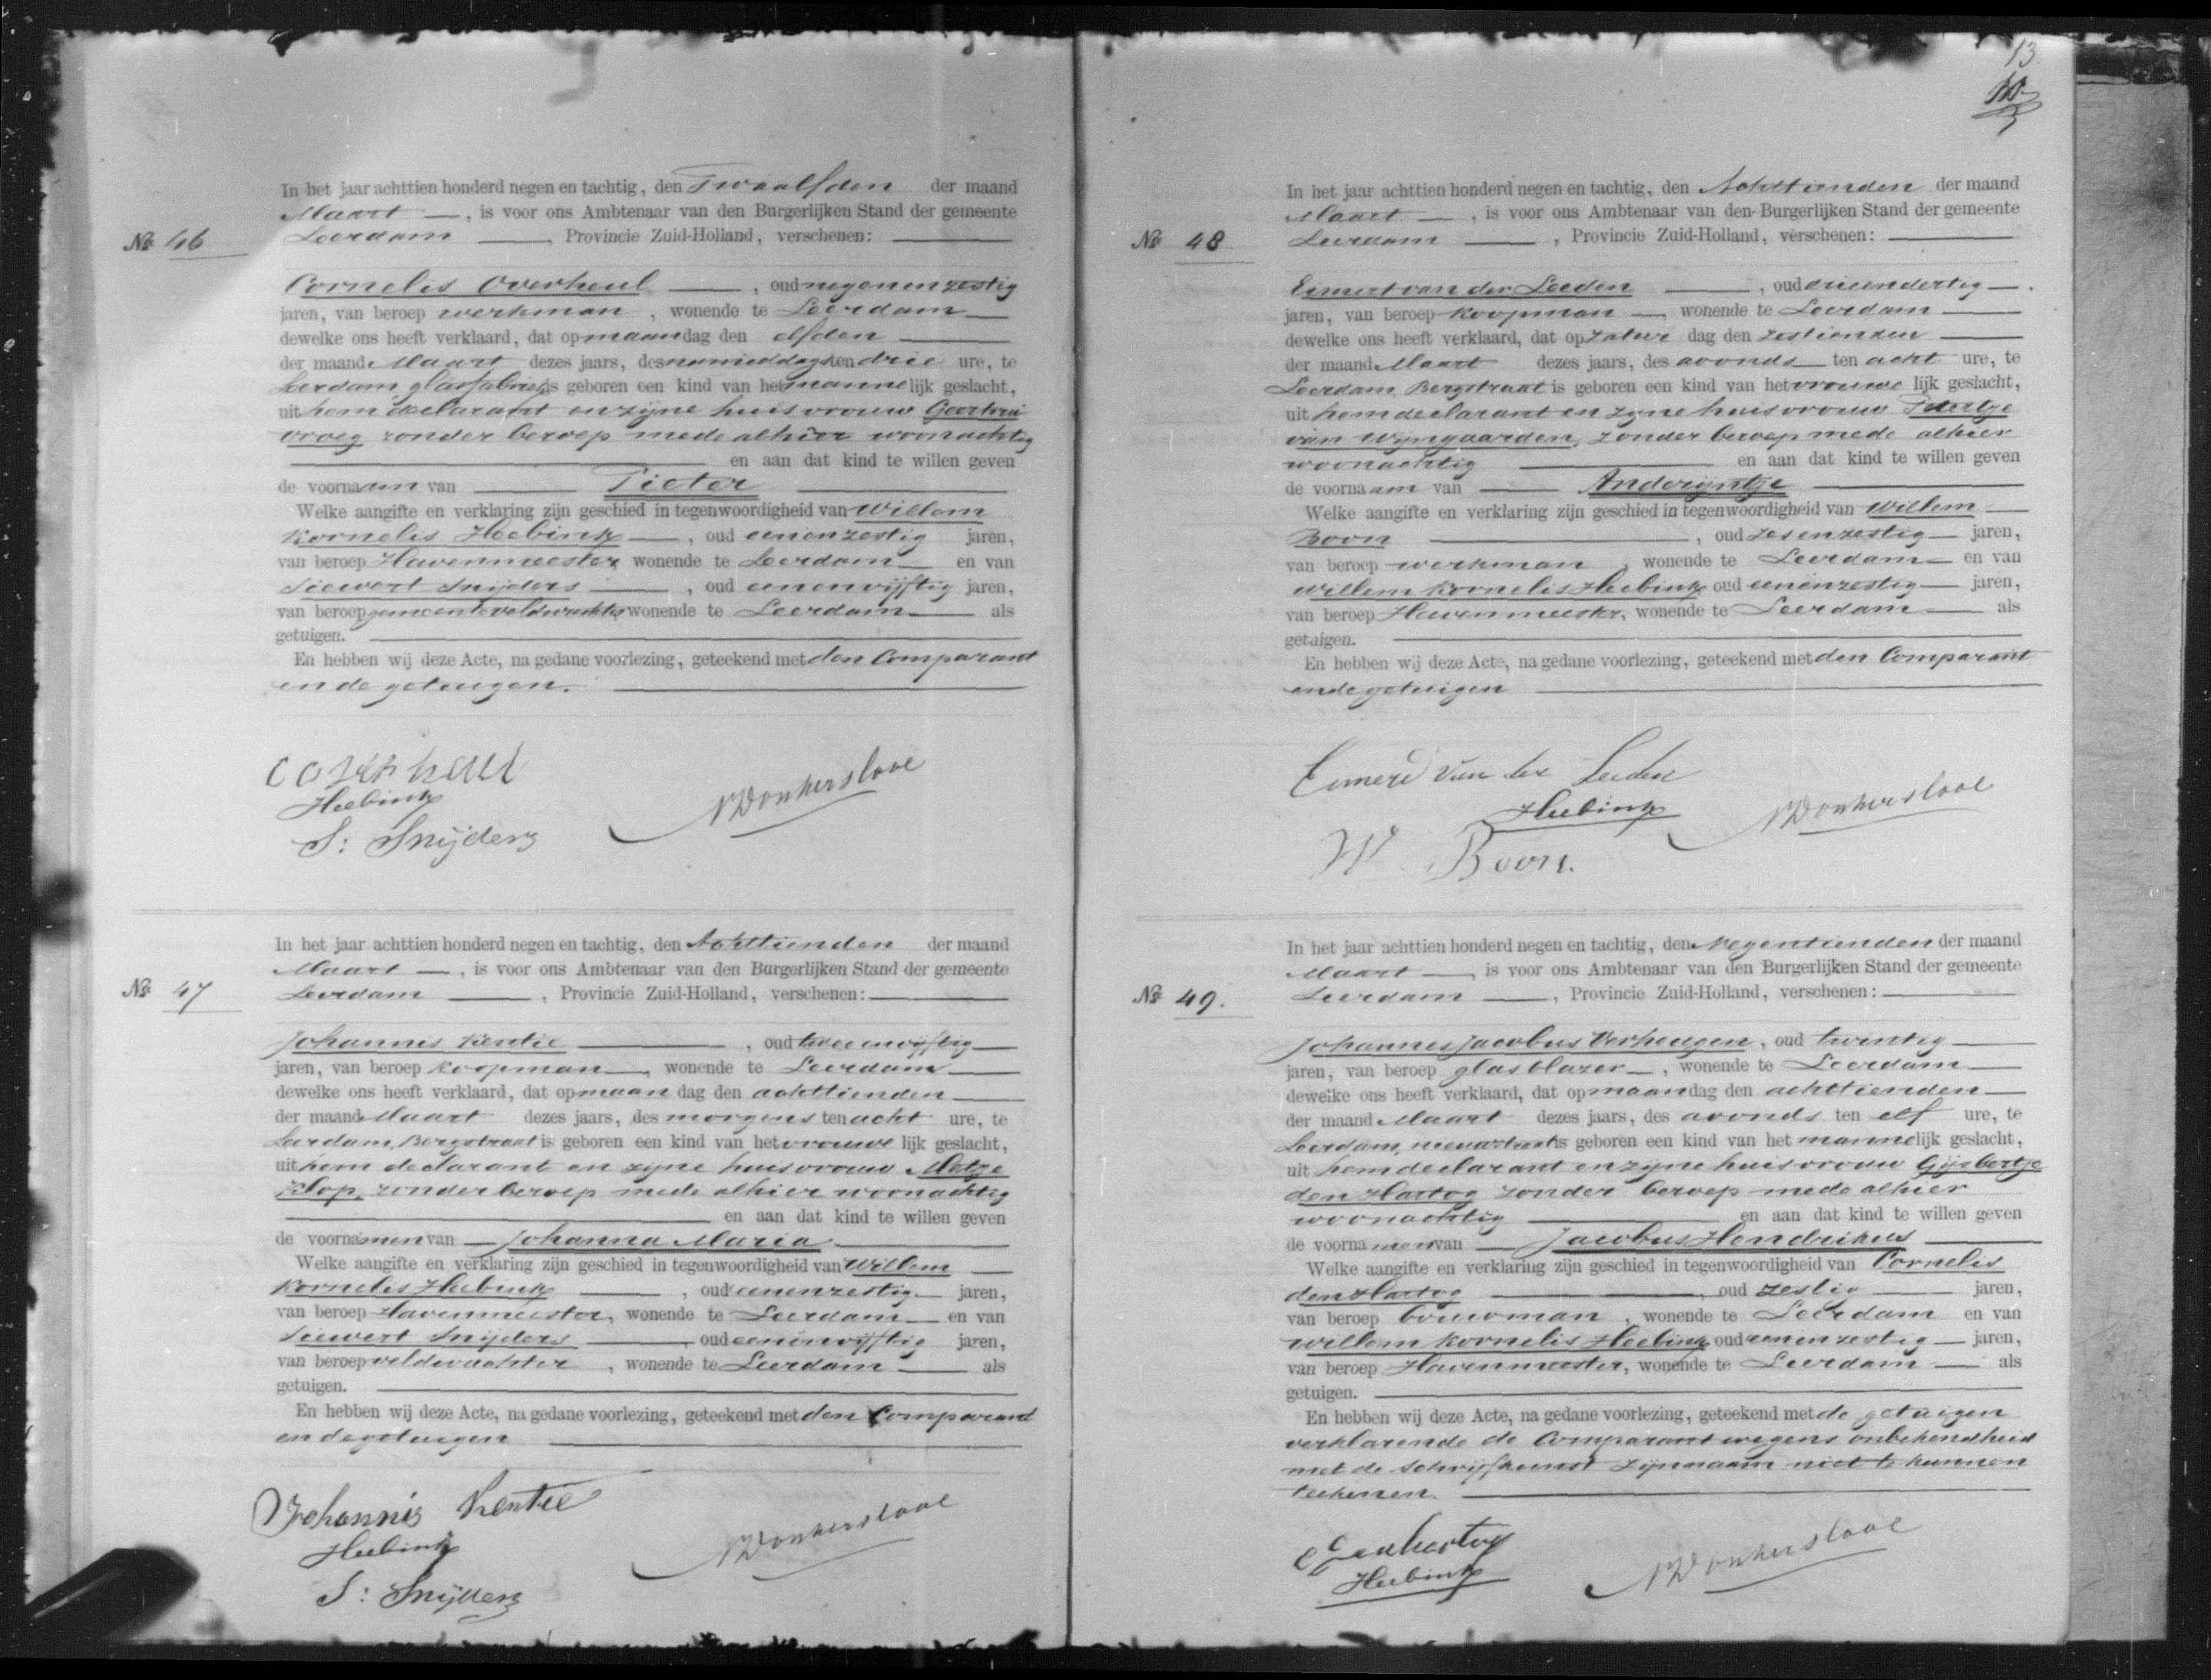 In het jaar achttien honderd negen en tachtig, den Twaalfden der maand
Maart —, is voor ons Ambtenaar van den Burgerlijken Stand der gemeente
No 46 Leerdam —, Provincie Zuid-Holland, verschenen: —
Cornelis Overheul —, oud negenenzestig
jaren, van beroep werkman, wonende te Leerdam —
dewelke ons heeft verklaard, dat op maandag den elfden —
der maand Maart dezes jaars, des namiddags ten drie ure, te
Leerdam, glasfabriek is geboren een kind van het mannelijk geslacht,
uit hem declarant en zijne huisvrouw Geertrui
Vroeg zonder beroep mede alhier woonachtig
— en aan dat kind te willen geven
de voornaam van — Pieter —
Welke aangifte en verklaring zijn geschied in tegenwoordigheid van Willem
Kornelis Heebink —, oud eenenzestig jaren,
van beroep Havenmeester wonende te Leerdam — en van
Siewert Snijders —, oud eenenvijftig jaren,
van beroep gemeenteveldwachter wonende te Leerdam — als
getuigen. —
En hebben wij deze Acte, na gedane voorlezing, geteekend met den Comparant
en de getuigen. —
Heebink
S: Snijders
Donkersloot
In het jaar achttien honderd negen en tachtig, den Achttienden der maand
Maart —, is voor ons Ambtenaar van den Burgerlijken Stand der gemeente
No 47 Leerdam —, Provincie Zuid-Holland, verschenen: —
Johannis Kentie —, oud tweeenvijftig —
jaren, van beroep koopman —, wonende te Leerdam —
dewelke ons heeft verklaard, dat op maandag den achttienden —
der maand Maart dezes jaars, des morgens ten acht ure, te
Leerdam, Bergstraat is geboren een kind van het vrouwelijk geslacht,
uit hem declarant en zijne huisvrouw Metje
Klop, zonder beroep mede alhier woonachtig
— en aan dat kind te willen geven
de voornamen van — Johanna Maria —
Welke aangifte en verklaring zijn geschied in tegenwoordigheid van Willem —
Kornelis Heebink —, oud eenenzestig — jaren,
van beroep Havenmeester, wonende te Leerdam — en van
Siewert Snijders —, oud eenenvijftig jaren,
van beroep veldwachter, wonende te Leerdam — als
getuigen. —
En hebben wij deze Acte, na gedane voorlezing, geteekend met den Comparant
en de getuigen —
Johannis Kentie
Heebink
S: Snijders
Donkersloot
13
In het jaar achttien honderd negen en tachtig, den Achttienden der maand
Maart —, is voor ons Ambtenaar van den Burgerlijken Stand der gemeente
No 48 Leerdam —, Provincie Zuid-Holland, verschenen: —
Eimert van der Leeden —, oud drieendertig —
jaren, van beroep koopman — wonende te Leerdam —
dewelke ons heeft verklaard, dat op zaturdag den zestienden —
der maand Maart dezes jaars, des avonds — ten acht ure, te
Leerdam, Bergstraat is geboren een kind van het vrouwelijk geslacht,
uit hem declarant en zijne huisvrouw Petertje
van Wijngaarden, zonder beroep mede alhier
woonachtig — en aan dat kind te willen geven
de voornaam van — Anderijntje —
Welke aangifte en verklaring zijn geschied in tegenwoordigheid van Willem —
Boon —, oud zesenzestig — jaren,
van beroep werkman, wonende te Leerdam — en van
Willem Kornelis Heebink oud eenenzestig — jaren,
van beroep Havenmeester, wonende te Leerdam — als
getuigen. —
En hebben wij deze Acte, na gedane voorlezing, geteekend met den Comparant
en de getuigen —
Eimert van der Leeden
Heebink
W Boon.
Donkersloot
In het jaar achttien honderd negen en tachtig, den Negentienden der maand
Maart —, is voor ons Ambtenaar van den Burgerlijken Stand der gemeente
No 49. Leerdam —, Provincie Zuid-Holland, verschenen: —
Johannes Jacobus Verheugen, oud twintig —
jaren, van beroep glasblazer —, wonende te Leerdam —
dewelke ons heeft verklaard, dat op maandag den achttienden —
der maand Maart dezes jaars, des avonds ten elf ure, te
Leerdam, nieuwstraat is geboren een kind van het mannelijk geslacht,
uit hem declarant en zijne huisvrouw Gijsbertje
den Hartog zonder beroep mede alhier
woonachtig — en aan dat kind te willen geven
de voornamen van — Jacobus Hendrikus —
Welke aangifte en verklaring zijn geschied in tegenwoordigheid van Cornelis
den Hartog —, oud zestig — jaren,
van beroep bouwman, wonende te Leerdam en van
Willem Kornelis Heebink oud eenenzestig — jaren,
van beroep Havenmeester, wonende te Leerdam — als
getuigen. —
En hebben wij deze Acte, na gedane voorlezing, geteekend met de getuigen
verklarende de Comparant wegens onbekendheid
met de schrijfkunst zijn naam niet te kunnen
teekenen. —
C den hartog
Heebink
Donkersloot